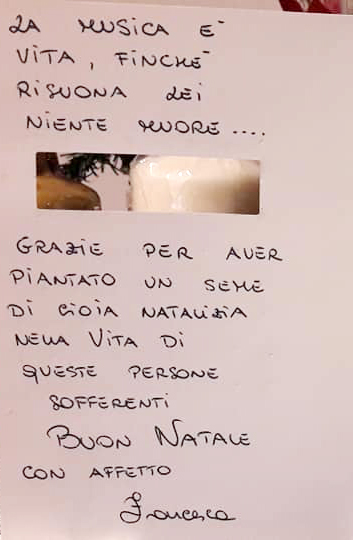 LA MUSICA E'
VITA, FINCHE'
RISUONA LEI
NIENTE MUORE....
GRAZIE PER AVER
PIANTATO UN SEME
DI GIOIA NATALIZIA
NELLA VITA DI
QUESTE PERSONE
SOFFERENTI
BUON NATALE
CON AFFETTO
Francesca